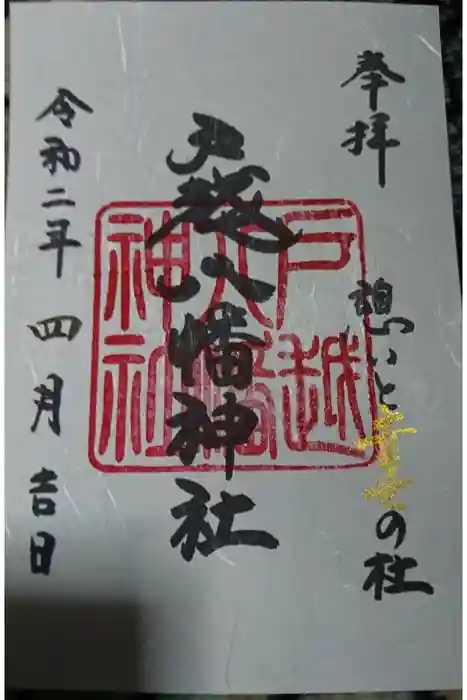 奉拝
憩いと幸の杜
戸越八幡神社
戸越
八幡
神社
令和二年四月吉日